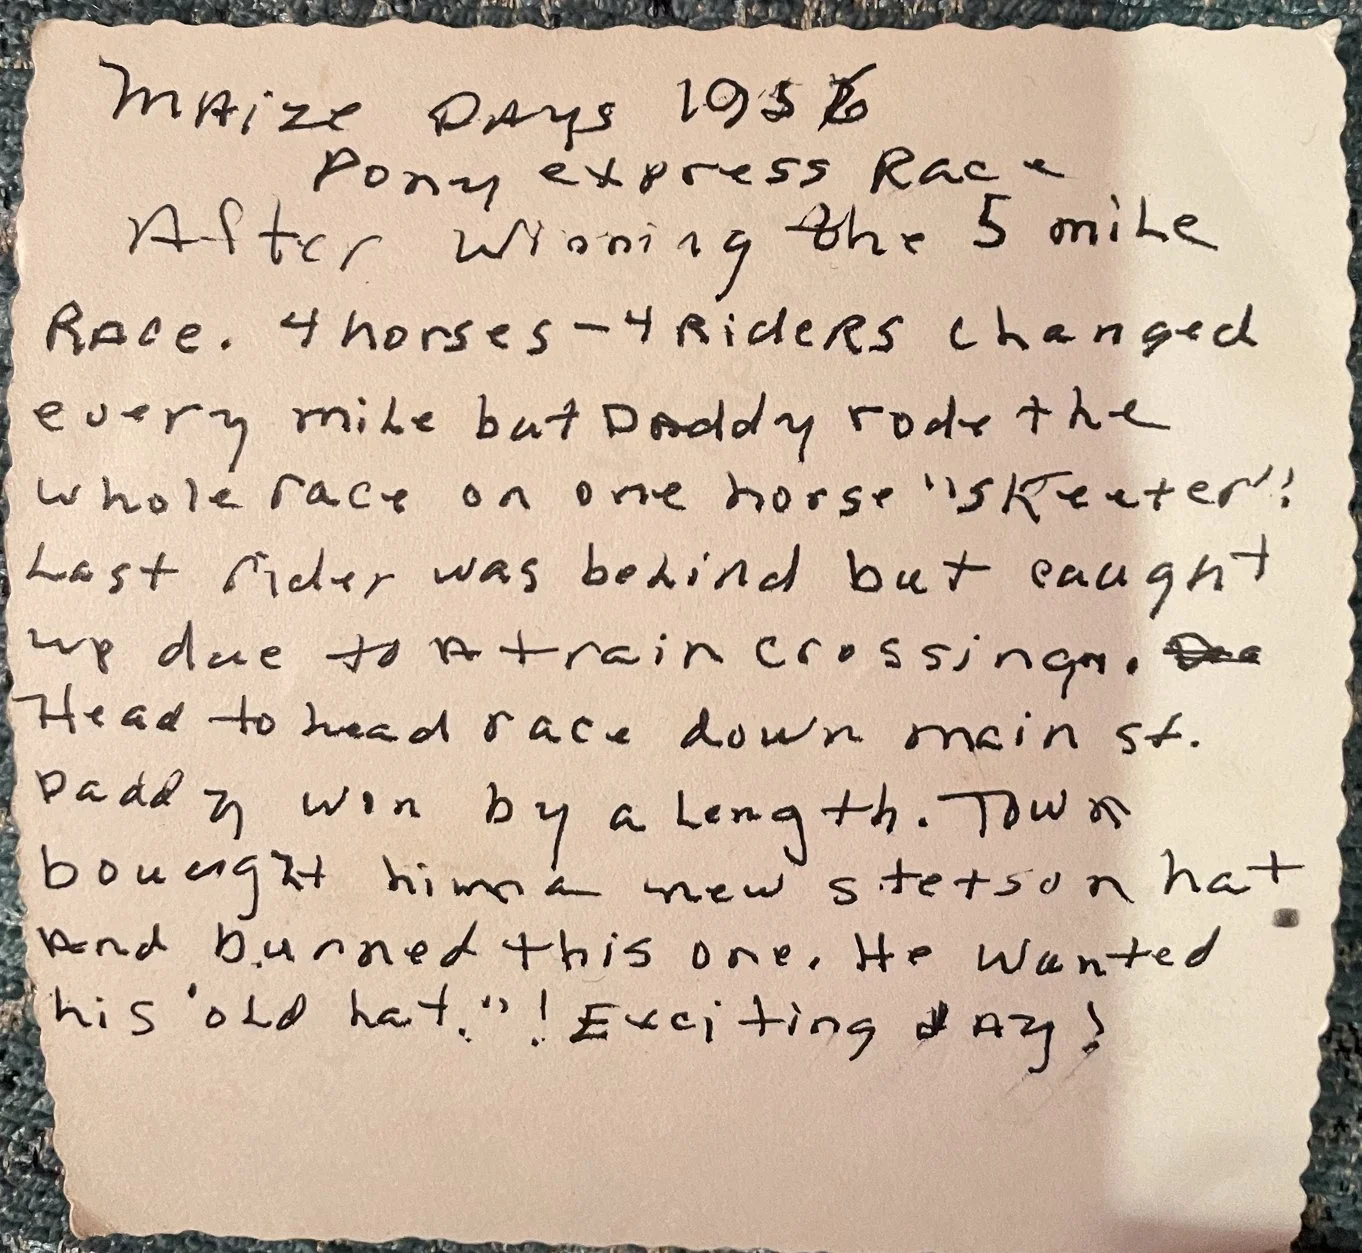 Maize Days 1956
Pony express Race
After winning the 5 mile
Race. 4 horses - 4 Riders changed
every mile but Daddy rode the
whole race on one horse "Skeeter"!
Last rider was behind but caught
up due to a train crossing.
Head to head race down main st.
Daddy won by a Length. Town
bought him a new stetson hat
And burned this one. He wanted
his "old hat."! Exciting day!